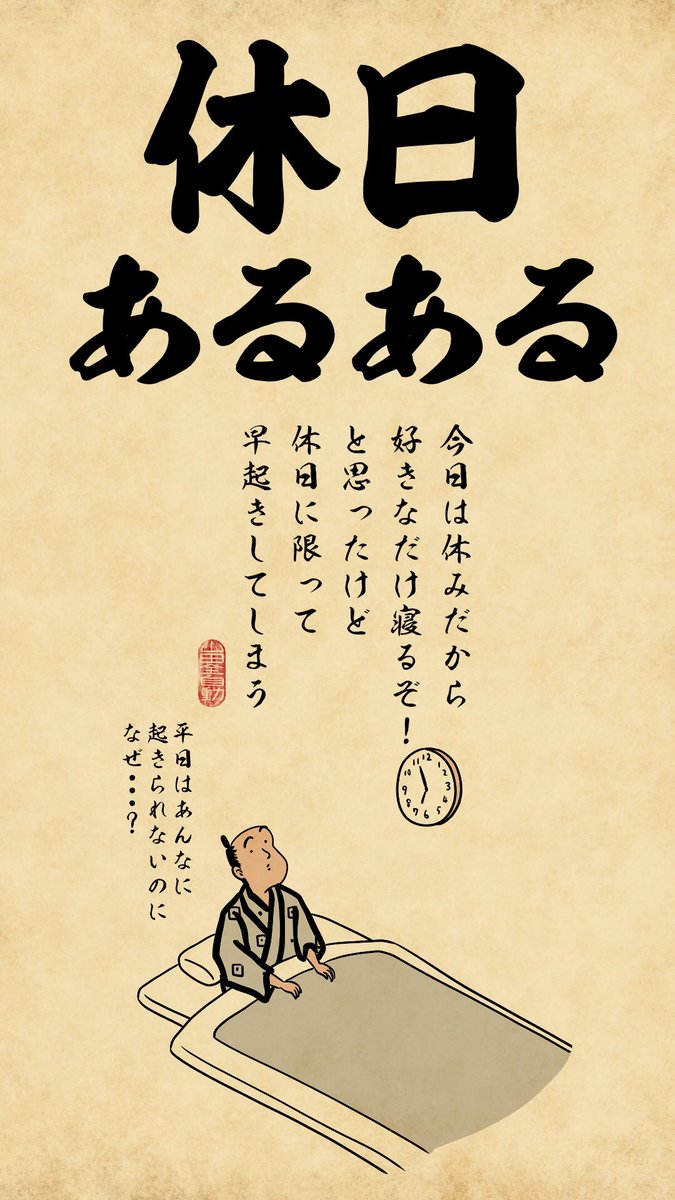 休日
あるある
今日は休みだから
好きなだけ寝るぞ！
と思ったけど
休日に限って
早起きしてしまう
平日はあんなに
起きられないのに
なぜ・・・？
12
1
2
3
4
5
6
7
8
9
10
11